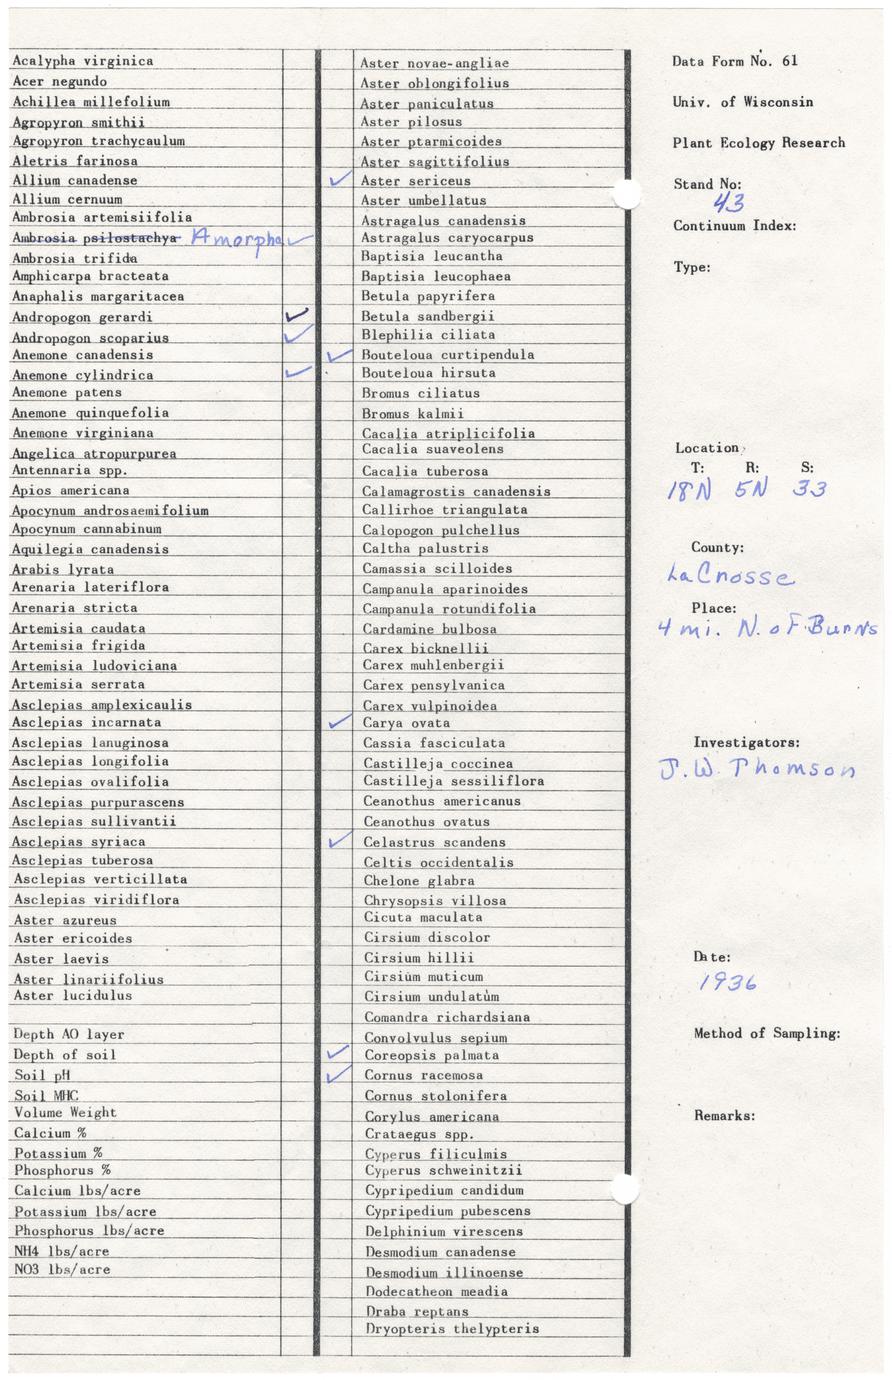 Acalypha virginica
Acer negundo
Achillea millefolium
Agropyron smithii
Agropyron trachycaulum
Aletris farinosa
Allium canadense
Allium cernuum
Ambrosia artemisiifolia
Ambrosia psilostachya Amorpha ✓
Ambrosia trifida
Amphicarpa bracteata
Anaphalis margaritacea
Andropogon gerardi ✓
Andropogon scoparius ✓
Anemone canadensis
Anemone cylindrica ✓
Anemone patens
Anemone quinquefolia
Anemone virginiana
Angelica atropurpurea
Antennaria spp.
Apios americana
Apocynum androsaemifolium
Apocynum cannabinum
Aquilegia canadensis
Arabis lyrata
Arenaria lateriflora
Arenaria stricta
Artemisia caudata
Artemisia frigida
Artemisia ludoviciana
Artemisia serrata
Asclepias amplexicaulis
Asclepias incarnata
Asclepias lanuginosa
Asclepias longifolia
Asclepias ovalifolia
Asclepias purpurascens
Asclepias sullivantii
Asclepias syriaca
Asclepias tuberosa
Asclepias verticillata
Asclepias viridiflora
Aster azureus
Aster ericoides
Aster laevis
Aster linariifolius
Aster lucidulus
Depth AO layer
Depth of soil
Soil pH
Soil MHC
Volume Weight
Calcium %
Potassium %
Phosphorus %
Calcium lbs/acre
Potassium lbs/acre
Phosphorus lbs/acre
NH4 lbs/acre
NO3 lbs/acre
Aster novae-angliae
Aster oblongifolius
Aster paniculatus
Aster pilosus
Aster ptarmicoides
Aster sagittifolius
✓ Aster sericeus
Aster umbellatus
Astragalus canadensis
Astragalus caryocarpus
Baptisia leucantha
Baptisia leucophaea
Betula papyrifera
Betula sandbergii
Blephilia ciliata
✓ Bouteloua curtipendula
Bouteloua hirsuta
Bromus ciliatus
Bromus kalmii
Cacalia atriplicifolia
Cacalia suaveolens
Cacalia tuberosa
Calamagrostis canadensis
Callirhoe triangulata
Calopogon pulchellus
Caltha palustris
Camassia scilloides
Campanula aparinoides
Campanula rotundifolia
Cardamine bulbosa
Carex bicknellii
Carex muhlenbergii
Carex pensylvanica
Carex vulpinoidea
✓ Carya ovata
Cassia fasciculata
Castilleja coccinea
Castilleja sessiliflora
Ceanothus americanus
Ceanothus ovatus
✓ Celastrus scandens
Celtis occidentalis
Chelone glabra
Chrysopsis villosa
Cicuta maculata
Cirsium discolor
Cirsium hillii
Cirsium muticum
Cirsium undulatum
Comandra richardsiana
Convolvulus sepium
✓ Coreopsis palmata
✓ Cornus racemosa
Cornus stolonifera
Corylus americana
Crataegus spp.
Cyperus filiculmis
Cyperus schweinitzii
Cypripedium candidum
Cypripedium pubescens
Delphinium virescens
Desmodium canadense
Desmodium illinoense
Dodecatheon meadia
Draba reptans
Dryopteris thelypteris
Data Form No. 61
Univ. of Wisconsin
Plant Ecology Research
Stand No:
43
Continuum Index:
Type:
Location:
T: R: S:
18N 5N 33
County:
LaCrosse
Place:
4 mi. N. of Burns
Investigators:
J.W. Thomson
Date:
1936
Method of Sampling:
Remarks: